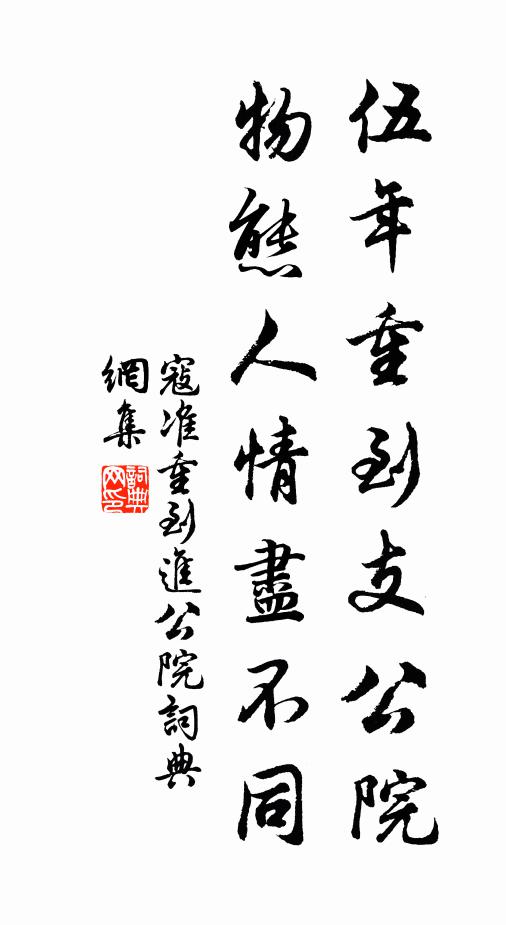 伍年重到支公院
物態人情盡不同
寇准重到進公院詞典
網集
詞典
网印